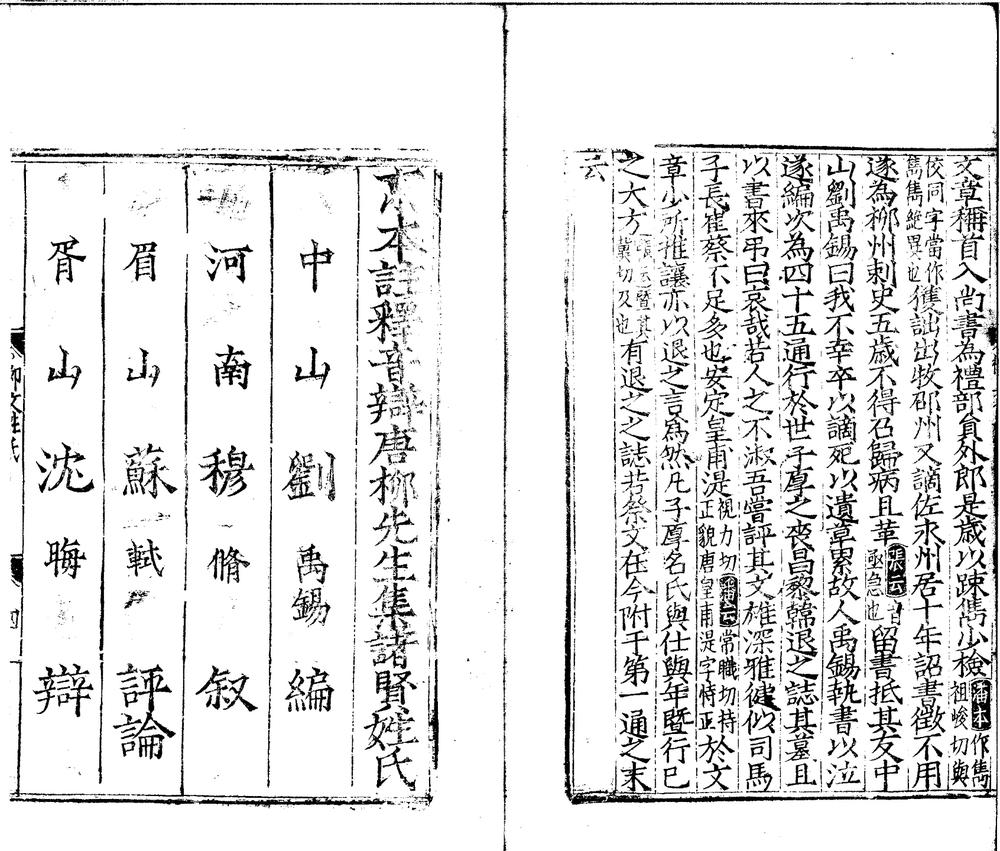 文章稱首入尚書為禮部員外郎是歲以踈雋少檢潘本作雋祖峻切與
俊同字當作雋雋絶異也獲訕出牧邵州又謫佐永州居十年詔書徵不用
遂為柳州刺史五歲不得召歸病且革張云音亟急也留書抵其友中
山劉禹錫曰我不幸卒以謫死以遺草累故人禹錫執書以泣
遂編次為四十五通行於世子厚之喪昌黎韓退之誌其墓且
以書來弔曰哀哉若人之不淑吾嘗評其文雄深雅健似司馬
子長崔蔡不足多也安定皇甫湜視力切潘云常職切持正貌唐皇甫湜字持正於文
章少所推讓亦以退之言為然凡子厚名氏與仕與年暨行己
之大方張云暨其冀切及也有退之之誌若祭文在今附于第一通之末
云
京本註釋音辯唐柳先生集諸賢姓氏
中山劉禹錫編
河南穆脩叙
眉山蘇軾評論
胥山沈晦辯
柳文姓氏
四